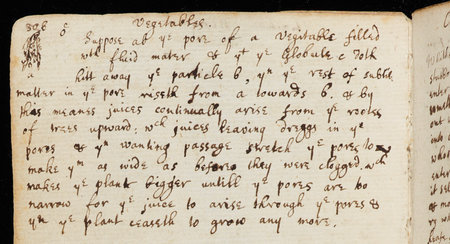 Vegetables.
Suppose ab yᵉ pore of a Vegitable filled
wth fluid mater & yt yᵉ Globule c doth
hitt away yᵉ particle b, yn yᵉ rest of subtile
matter in yᵉ pore riseth from a towards b. & by
this meanes juices continually arise from yᵉ roots
of trees upward: wch juices leaving dreggs in yᵉ
pores & yn wanting passage stretch yᵉ pores to
make ym as wide as before they were clogged. wch
makes yᵉ plant bigger untill yᵉ pores are too
narrow for yᵉ juice to arise through yᵉ pores &
yn yᵉ plant ceaseth to grow any more.